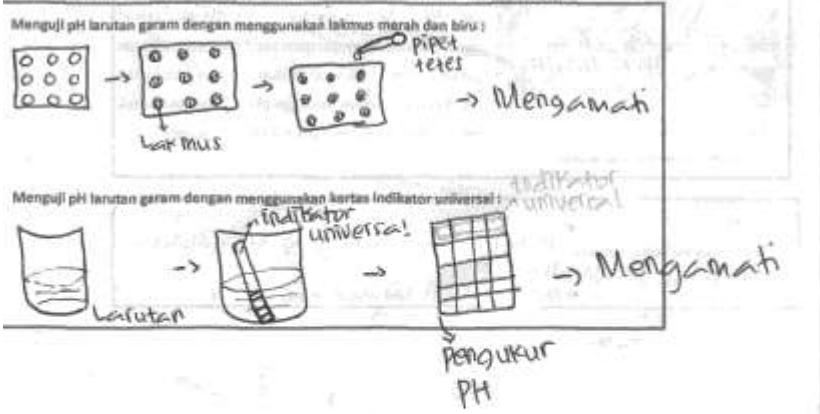 Menguji pH larutan garam dengan menggunakan lakmus merah dan biru :
pipet
tetes
→ → → Mengamati
Lakmus
Menguji pH larutan garam dengan menggunakan kertas indikator universal :
indikator
universal
indikator
universal
→ → → Mengamati
Larutan
pengukur
PH